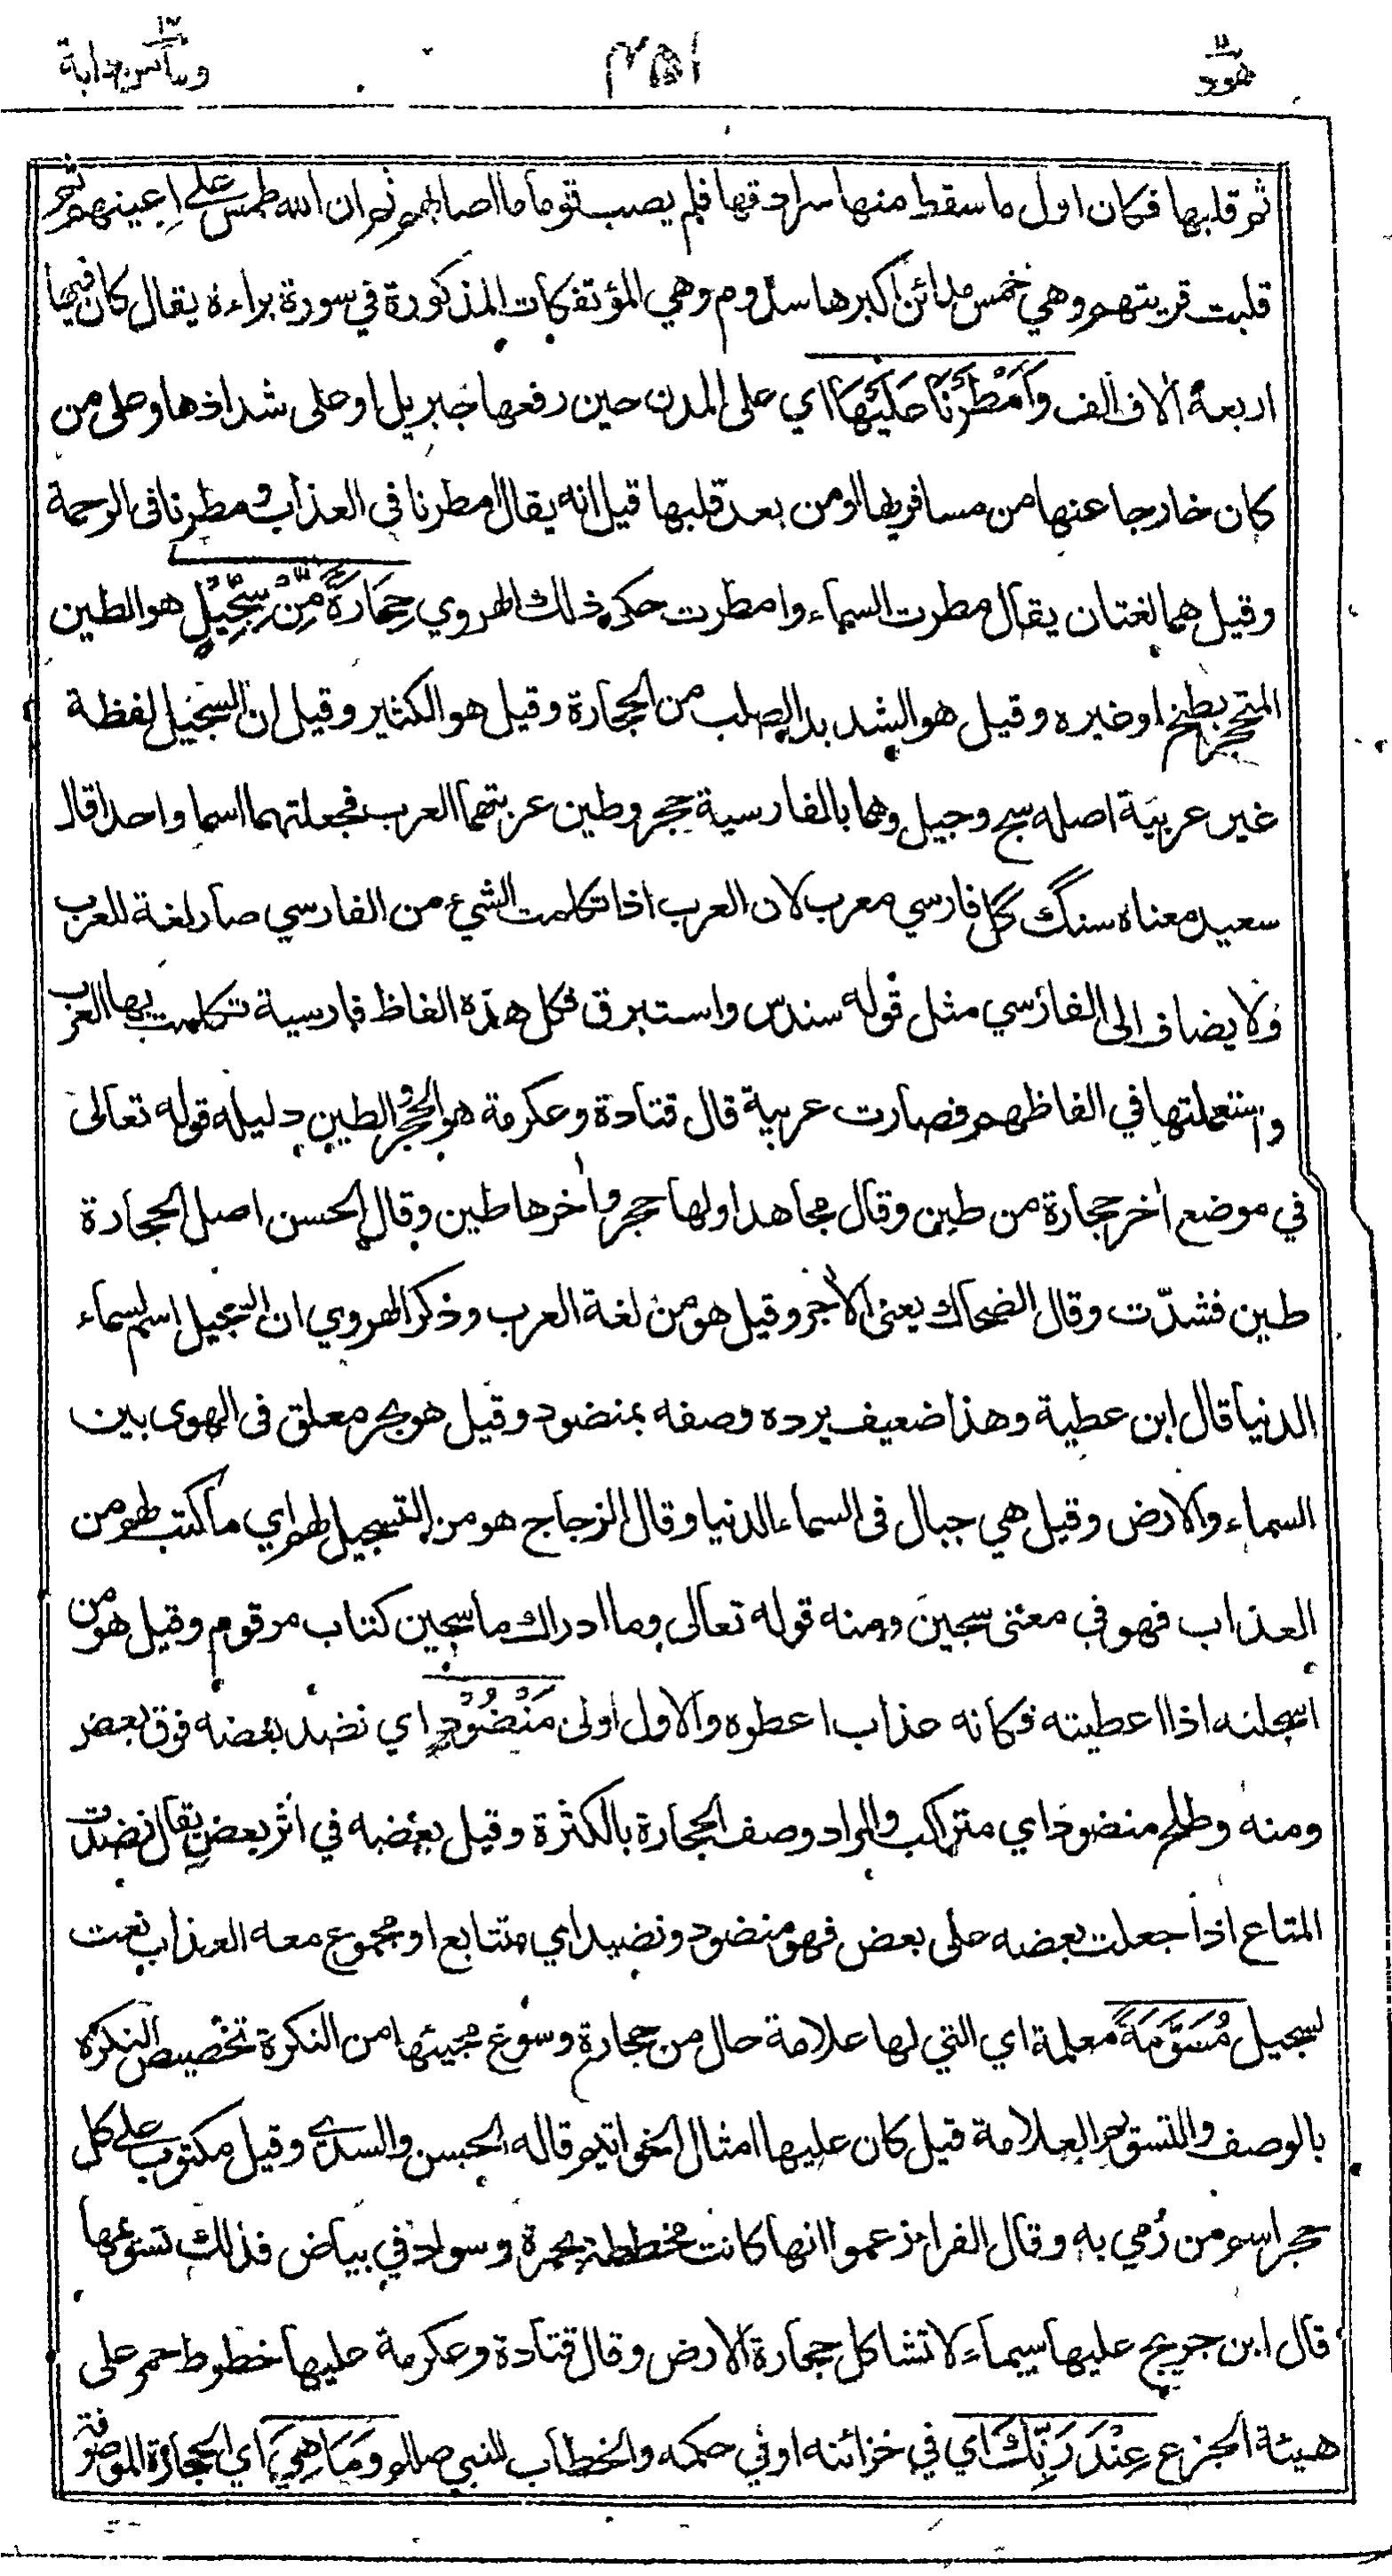 هود ١١
٤٥١
ومامن دابة ١٢
ثم قلبها فكان اول ما سقط منها سرادقها فلم يصب قوما ما اصابهم ثم ان الله طمس على اعينهم ثم
قلبت قريتهم وهي خمس مدائن اكبرها سدوم وهي المؤتفكات المذكورة في سورة براءة يقال كان فيها
اربعة ألاف ألف وَأَمْطَرْنَا عَلَيْهَا اي على المدن حين رفعها جبريل او على شذاذها وعلى من
كان خارجا عنها من مسافريها او من بعد قلبها قيل انه يقال امطرنا في العذاب ومطرنا فى الرحمة
وقيل هما لغتان يقال مطرت السماء وامطرت حكى ذلك الهروي حِجَارَةً مِّنْ سِجِّيْلٍ هو الطين
المتحجر بطبخ او غيره وقيل هو الشديد الصلب من الحجارة وقيل هو الكثير وقيل ان السجيل لفظة
غير عربية اصله سج وجيل وهما بالفارسية حجر وطين عربتهما العرب فجعلتهما اسما واحدا قال
سعيد معناه سنگ گل فارسي معرب لان العرب اذا تكلمت الشيء من الفارسي صار لغة للعرب
ولا يضاف الى الفارسي مثل قوله سندس واستبرق فكل هذه الفاظ فارسية تكلمت بها العرب
واستعملتها في الفاظهم فصارت عربية قال قتادة وعكرمة هو الحجر والطين دليله قوله تعالى
في موضع أخر حجارة من طين وقال مجاهد اولها حجر وأخرها طين وقال الحسن اصل الحجارة
طين فشدّت وقال الضحاك يعنى الأجر وقيل هو من لغة العرب وذكر الهروي ان السجيل اسم لسماء
الدنيا قال ابن عطية وهذا ضعيف يرده وصفه بمنضود وقيل هو بحر معلق فى الهوى بين
السماء والارض وقيل هي جبال فى السماء الدنيا وقال الزجاج هو من التسجيل لهم اي ما كتب لهم من
العذاب فهو في معنى سجين ومنه قوله تعالى وما ادراك ما سجين كتاب مرقوم وقيل هو من
اسجلته اذا اعطيته فكانه عذاب اعطوه والاول اولى مَنْضُوْدٍ اي نضد بعضه فوق بعض
ومنه وطلح منضود اي متراكب والمراد وصف الحجارة بالكثرة وقيل بعضه في اثر بعض يقال نضدت
المتاع اذا جعلت بعضه على بعض فهو منضود ونضيد اي متتابع او مجموع معه العذاب نعت
لسجيل مُسَوَّمَةً معلمة اي التي لها علامة حال من حجارة وسوغ مجيئها من النكرة تخصيص النكرة
بالوصف والتسويم العلامة قيل كان عليها امثال الخواتيم قاله الحسن والسدي وقيل مكتوب على كل
حجر اسم من رُمي به وقال الفراء زعموا انها كانت مخططة بحمرة وسواد في بياض فذلك تسويمها
قال ابن جريج عليها سيماء لا تشاكل حجارة الارض وقال قتادة وعكرمة عليها خطوط حمر على
هيئة الجزع عِنْدَ رَبِّكَ اي في خزائنه او في حكمه والخطاب للنبي صللم وَمَا هِيَ اي الحجارة الموصوفة